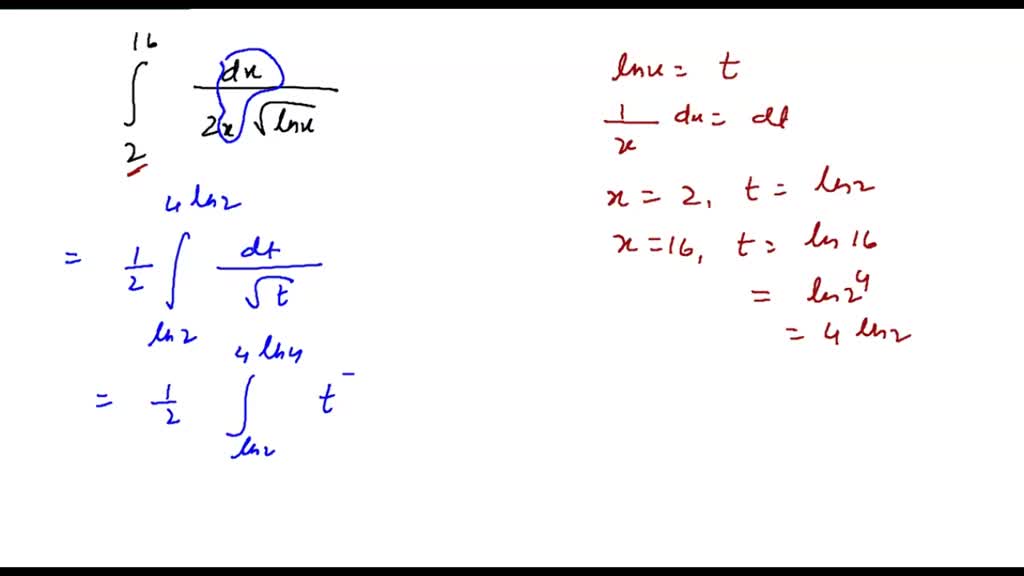 ∫₂¹⁶ dx / (2x √(ln x))
= 1/2 ∫_{ln2}^{4 ln2} dt / √t
= 1/2 ∫_{ln2}^{4 ln4} t⁻
ln x = t
1/x dx = dt
x = 2, t = ln2
x = 16, t = ln 16
= ln2⁴
= 4 ln2